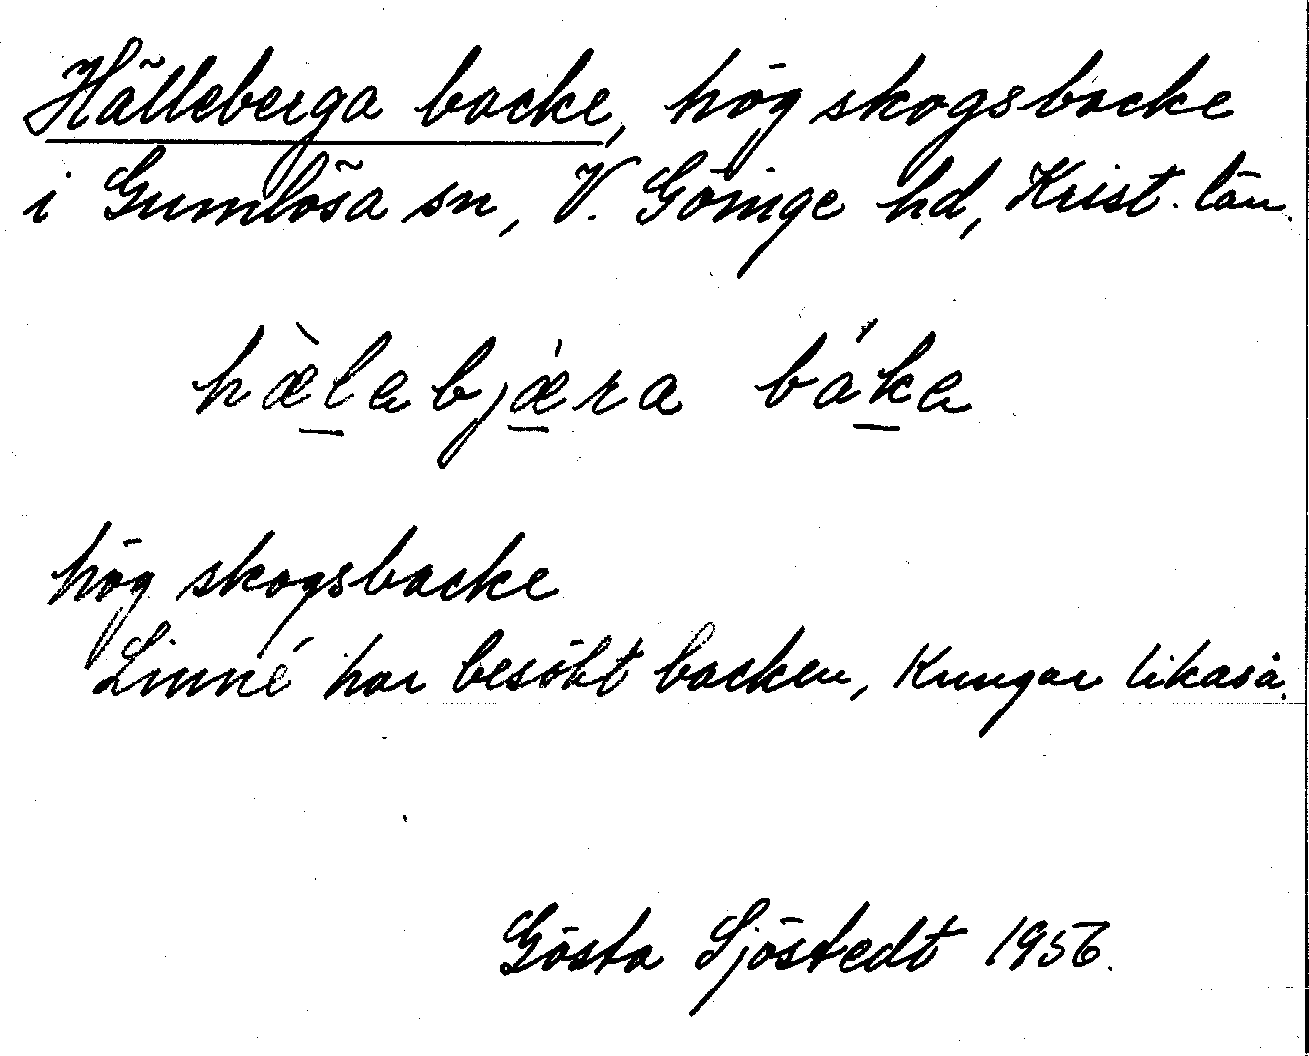 Hälleberga backe, hög skogsbacke
i Gumlösa sn, V. Göinge hd, Krist. län.
hæ̀lebjæ̀ra bákə
hög skogsbacke
Linné har besökt backen, Kungar likaså.
Gösta Sjöstedt 1956.